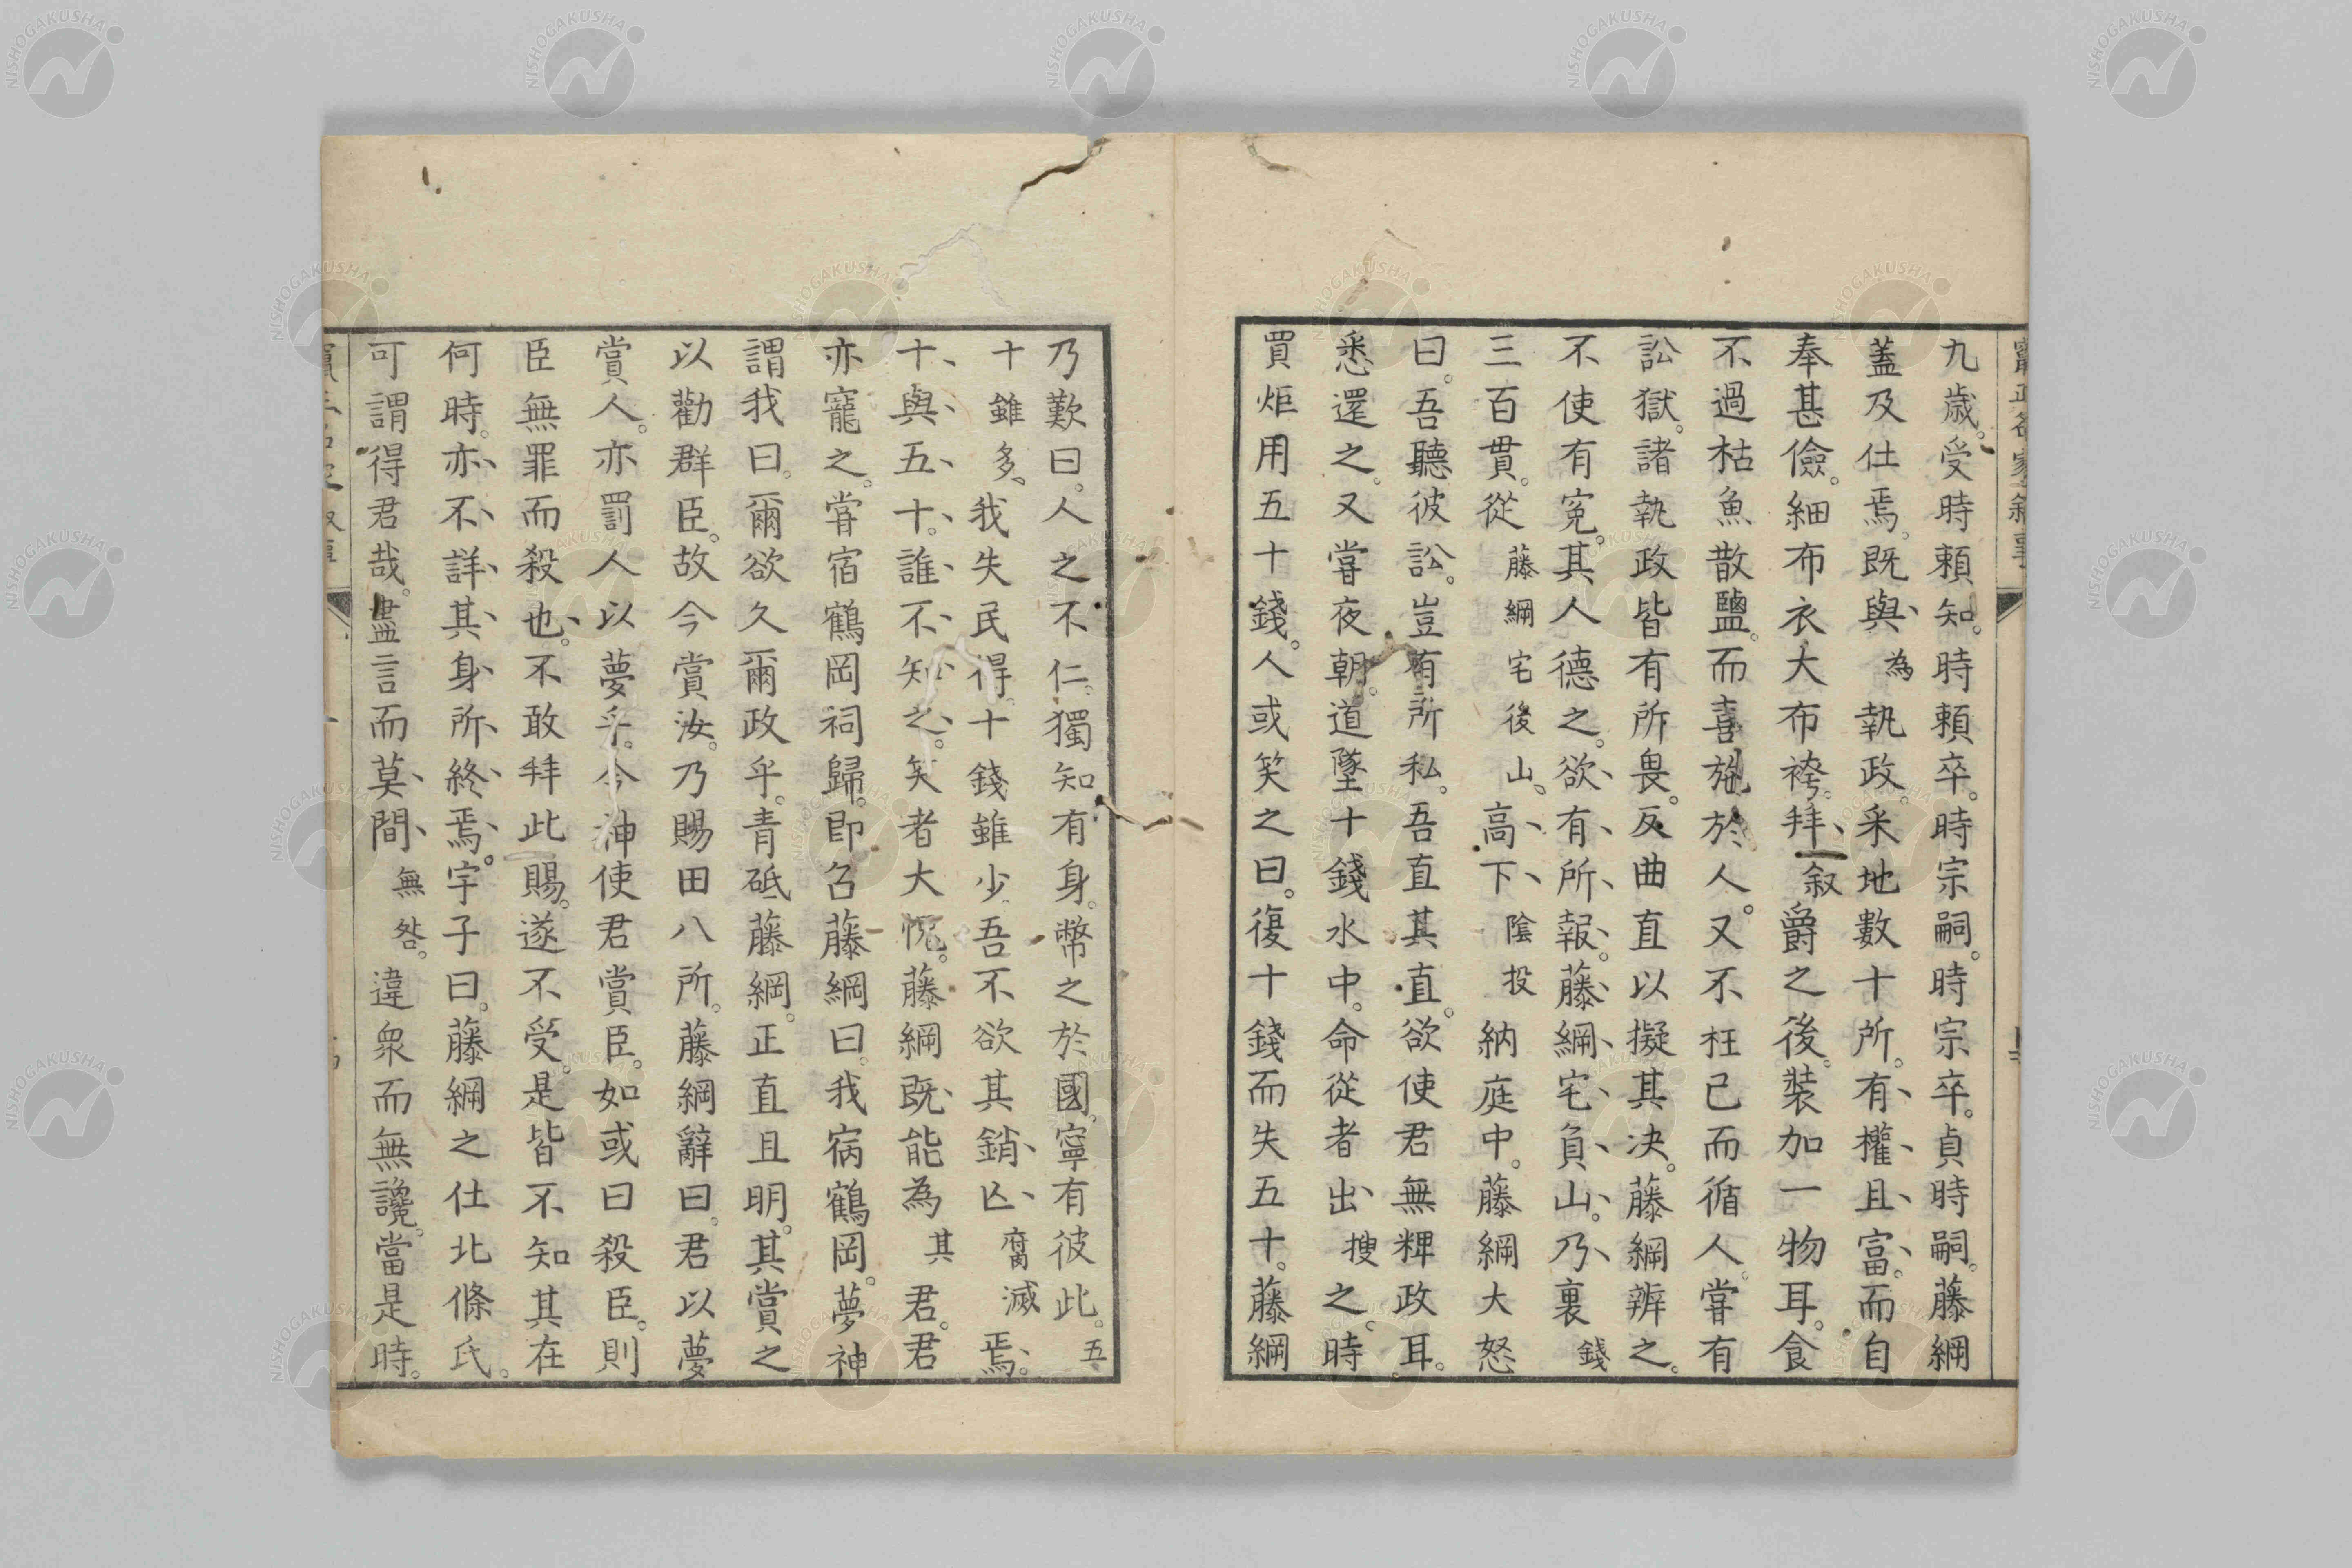 九歲。受時賴知。時賴卒。時宗嗣。時宗卒。貞時嗣。藤綱
蓋及仕焉。既與為執政。采地數十所。有權且富。而自
奉甚儉。細布衣大布袴。拜叙爵之後。裝加一物耳。食
不過枯魚散鹽。而喜施於人。又不枉已而循人。嘗有
訟獄。諸執政皆有所畏。反曲直以擬其决。藤綱辨之。
不使有冤。其人德之。欲有所報。藤綱宅負山。乃裹錢
三百貫。從藤綱宅後山、高下、陰投納庭中。藤綱大怒
曰。吾聽彼訟。豈有所私。吾直其直。欲使君無粃政耳。
悉還之。又嘗夜朝。道墜十錢水中。命從者出搜之。時
買炬用五十錢。人或笑之曰。復十錢而失五十。藤綱
乃歎曰。人之不仁。獨知有身。幣之於國。寧有彼此。五
十雖多。我失民得。十錢雖少。吾不欲其銷亾腐滅焉。
十與五十。誰不知之。笑者大愧。藤綱既能為其君。君
亦寵之。嘗宿鶴岡祠歸。即召藤綱曰。我病鶴岡。夢神
謂我曰。爾欲久爾政乎。青砥藤綱。正直且明。其賞之
以勸群臣。故今賞汝。乃賜田八所。藤綱辭曰。君以夢
賞人。亦罰人以夢乎。今神使君賞臣。如或曰殺臣。則
臣無罪而殺也。不敢拜此賜。遂不受。是皆不知其在
何時。亦不詳其身所終焉。宇子曰。藤綱之仕北條氏。
可謂得君哉。盡言而莫間、無咎。違衆而無讒。當是時。